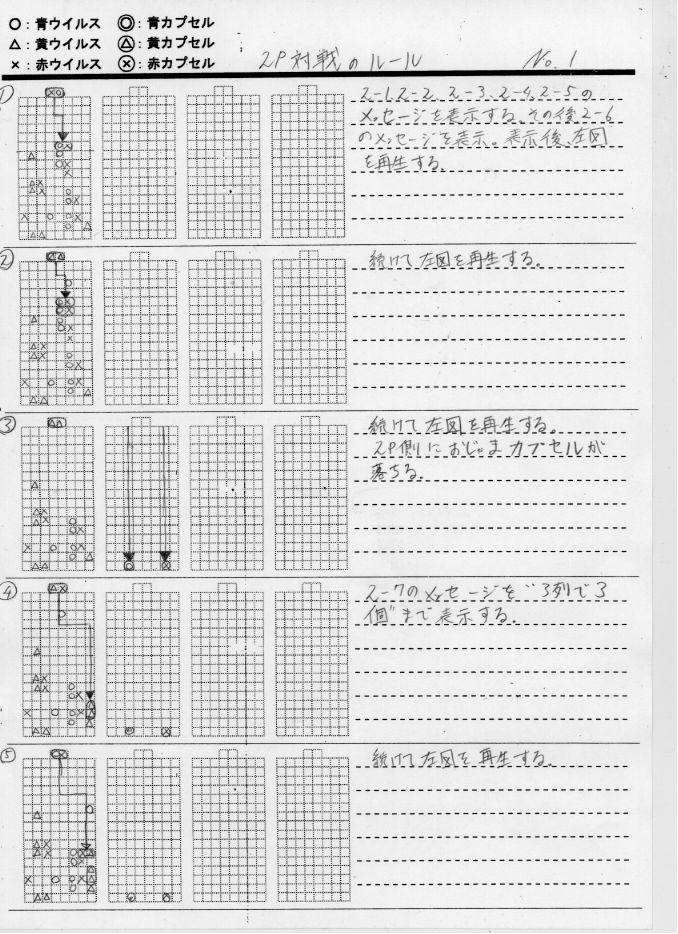 ○：青ウイルス ◎：青カプセル
△：黄ウイルス △：黄カプセル
×：赤ウイルス ⊗：赤カプセル
2P対戦のルール No.1
① 2-1,2-2,2-3,2-4,2-5の
メッセージを表示する。その後2-6
のメッセージを表示。表示後、左図
を再生する。
② 続けて左図を再生する。
③ 続けて左図を再生する。
2P側におじゃまカプセルが
落ちる。
④ 2-7のメッセージを"3列で3
個"まで表示する。
⑤ 続けて左図を再生する。